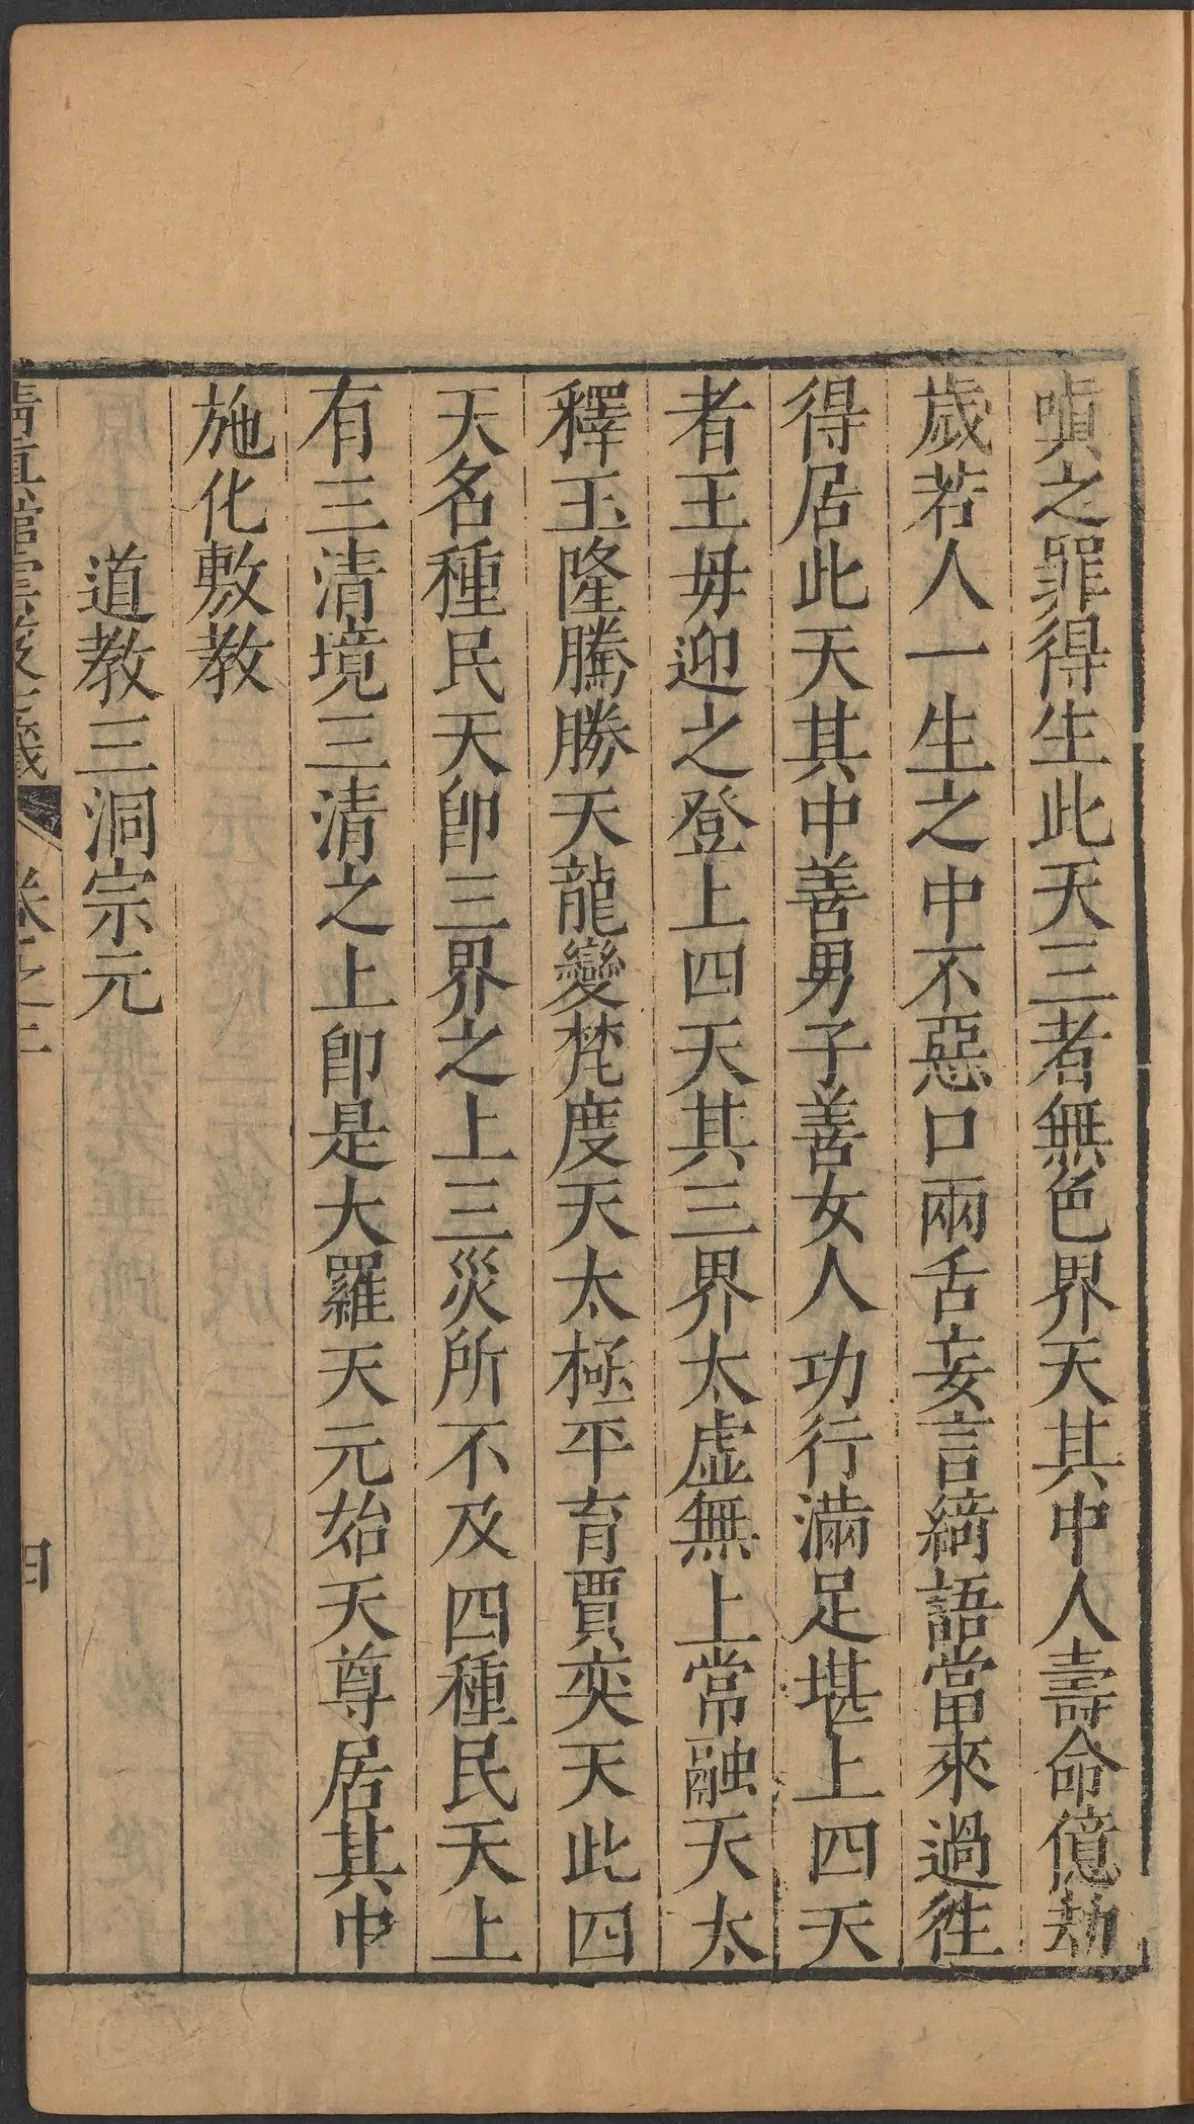 嗔之罪得生此天三者無色界天其中人壽命億劫
歲若人一生之中不惡口兩舌妄言綺語當來過徃
得居此天其中善男子善女人功行滿足堪上四天
者王毋迎之登上四天其三界太虛無上常融天太
釋玉隆騰勝天龍變梵度天太極平育賈奕天此四
天名種民天卽三界之上三災所不及四種民天上
有三清境三清之上卽是大羅天元始天尊居其中
施化敷教
道教三洞宗元